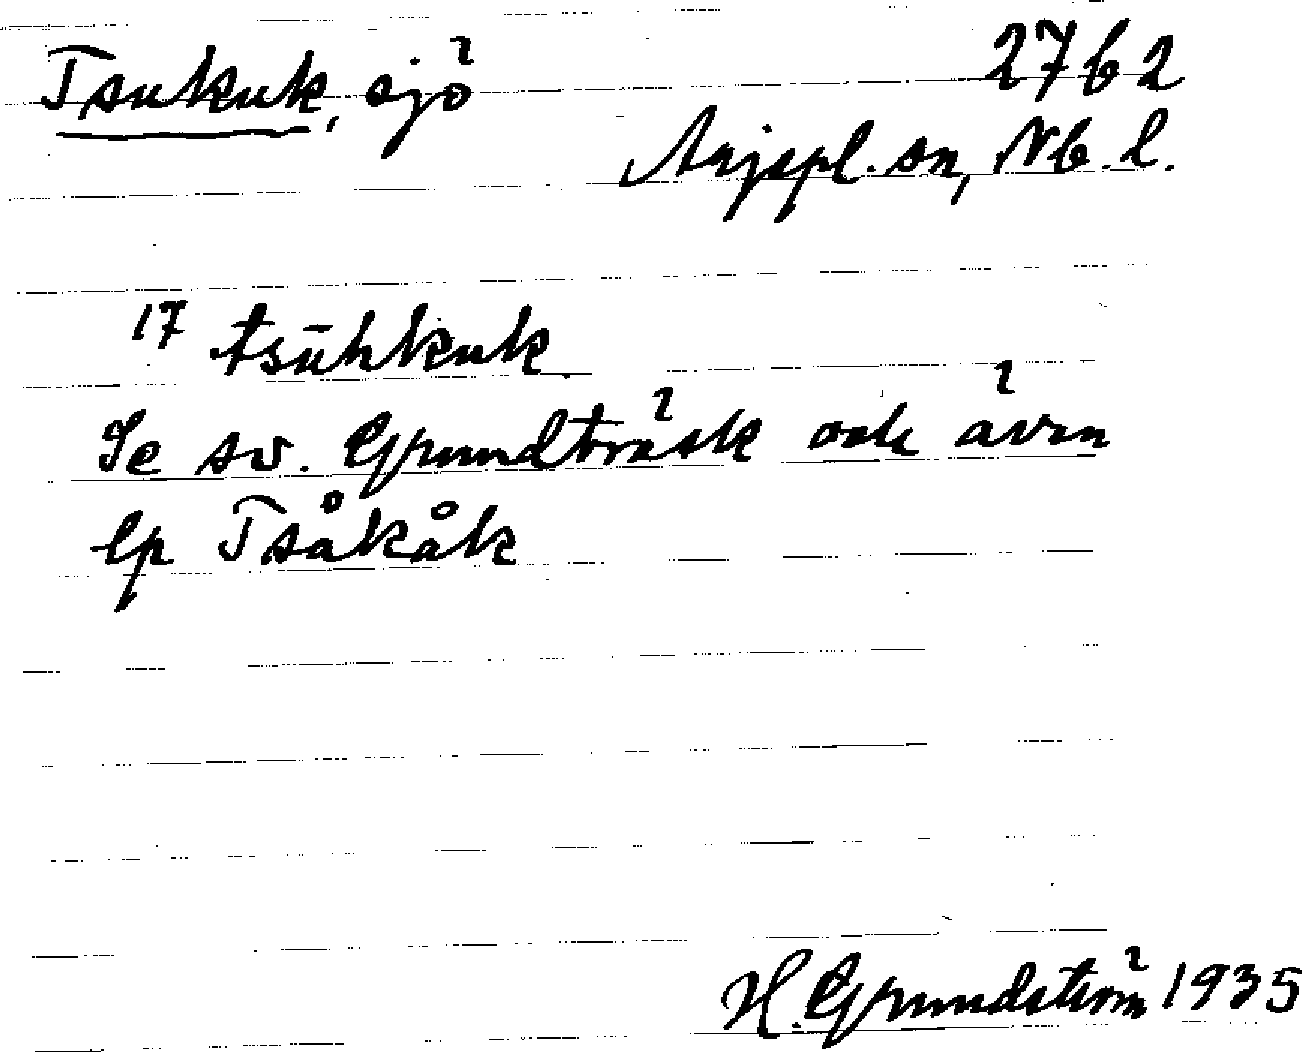 Tsukuk, sjö 2762
Arjepl. sn, Nb. l.
17 tsūhkuk
Se sv. Grundträsk och även
lp Tsåkåk
H. Grundström 1935